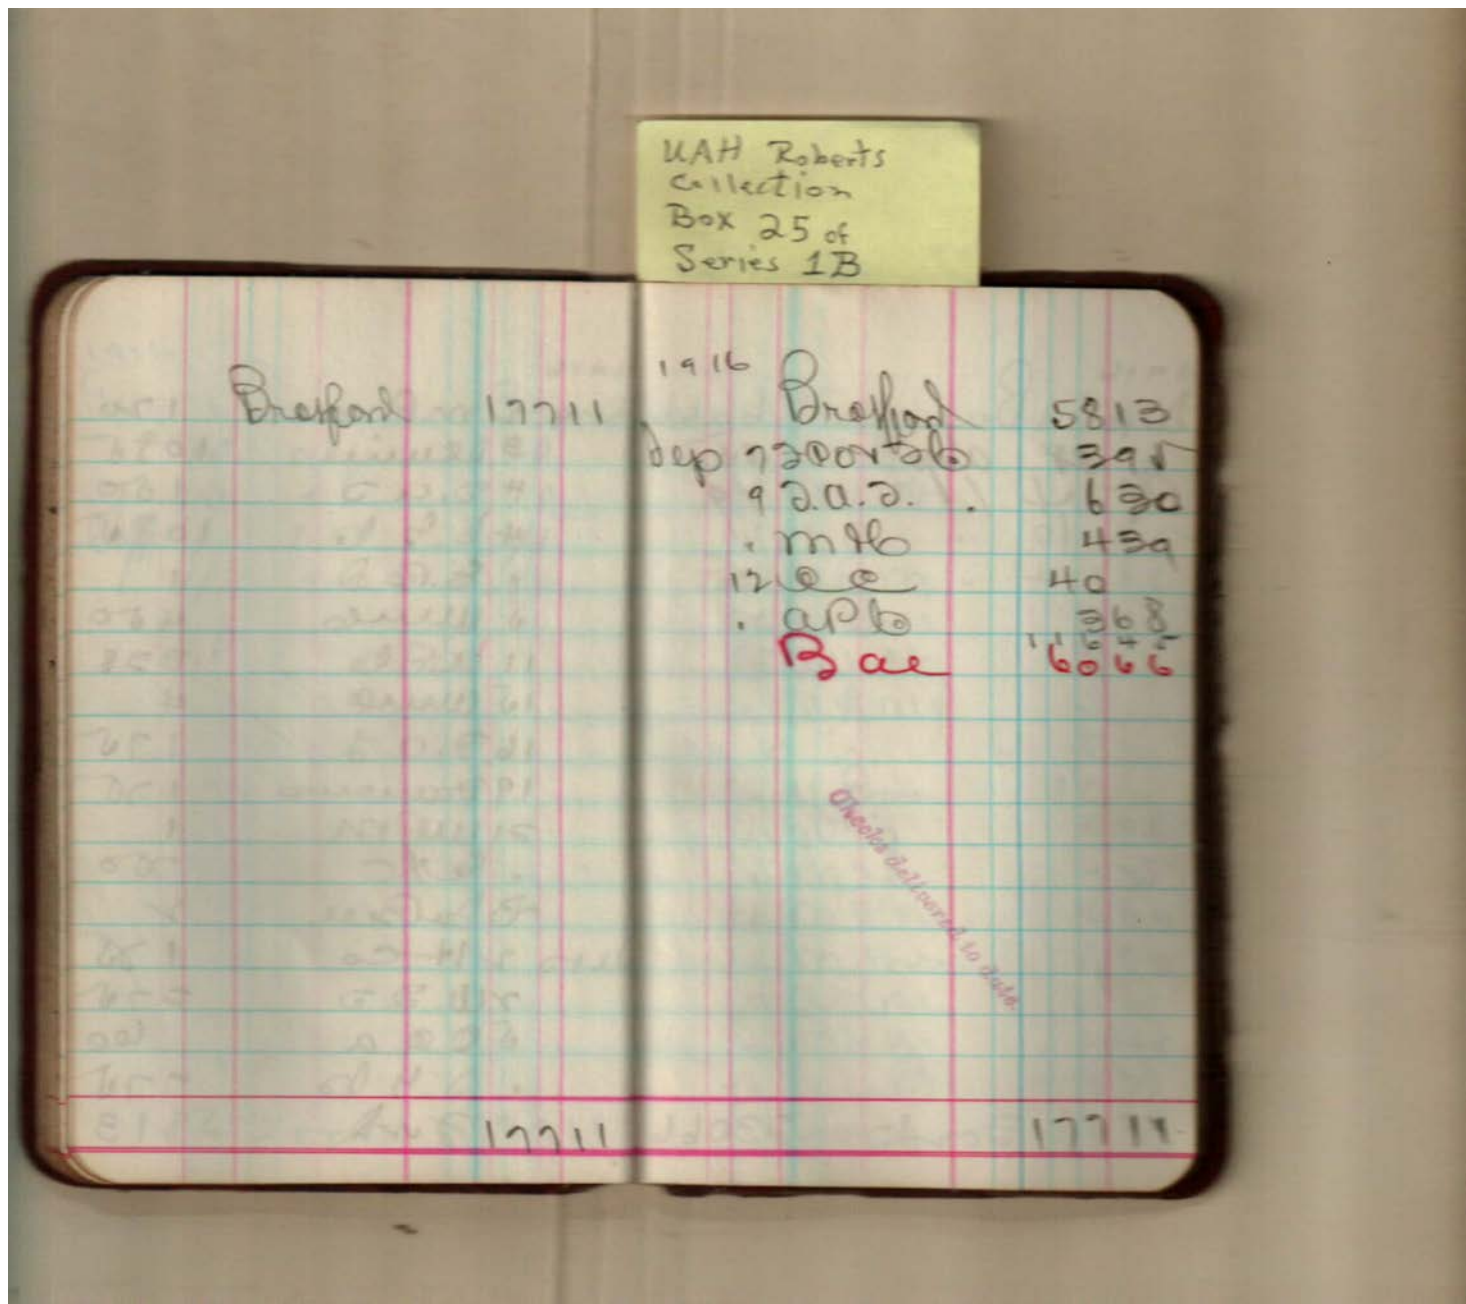 UAH Roberts
Collection
Box 25 of
Series 1B
Bro't ford 17711
17711
1916
Bro't ford 5813
dep 7 395
9 J.a.J. 630
. m 439
12 40
. 368
11645
Bal 6066
Checks delivered to date.
17711